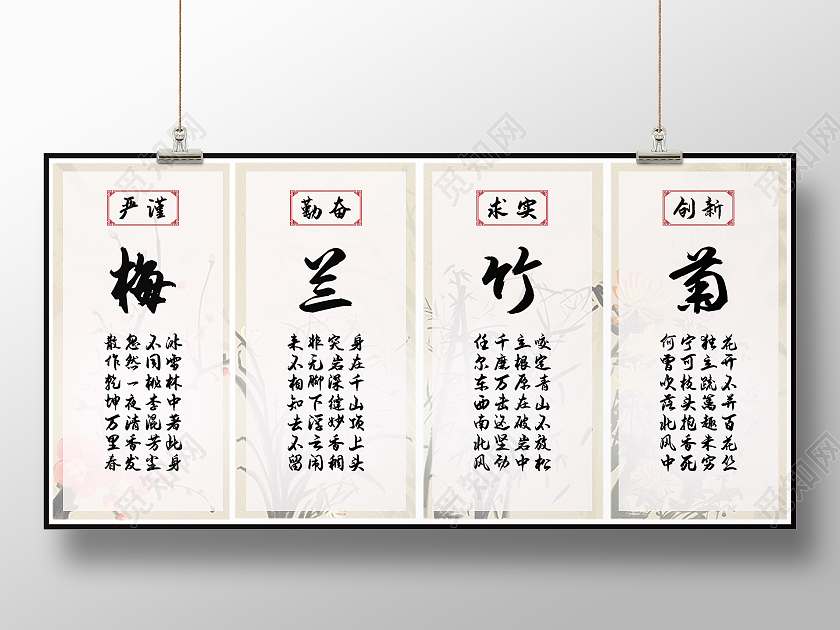 严谨
梅
冰雪林中著此身
不同桃李混芳尘
忽然一夜清香发
散作乾坤万里春
勤奋
兰
身在千山顶上头
突岩深缝妙香稠
非无脚下浮云闹
来不相知去不留
求实
竹
咬定青山不放松
立根原在破岩中
千磨万击还坚劲
任尔东西南北风
创新
菊
花开不并百花丛
独立疏篱趣未穷
宁可枝头抱香死
何曾吹落北风中
觅知网